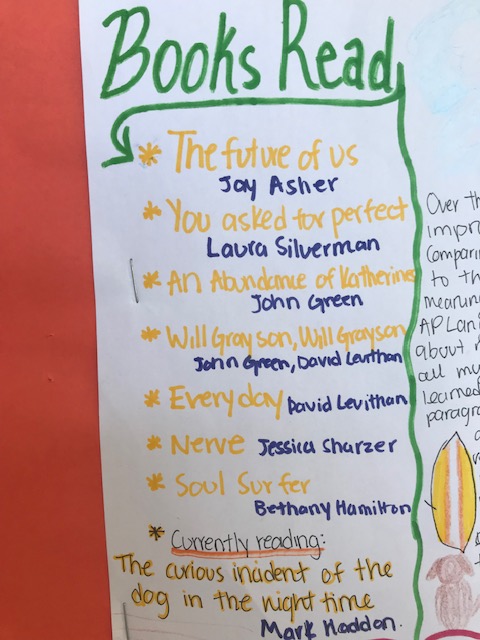 Books Read
* The future of us
Jay Asher
* You asked for perfect
Laura Silverman
* An Abundance of Katherines
John Green
* Will Grayson, Will Grayson
John Green, David Levithan
* Everyday David Levithan
* Nerve Jessica Sharzer
* Soul Surfer
Bethany Hamilton
* Currently reading:
The curious incident of the
dog in the night time
Mark Haddon.
Over th
impro
Compari
to th
meaning
AP Lan
about
all my
learned
paragra